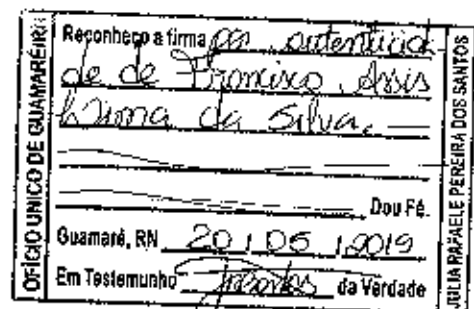 OFÍCIO UNICO DE GUAMARÉ/RN
Reconheço a firma por autenticid
de de Francisco Assis
Lima da Silva.
Dou Fé.
Guamaré, RN 20 / 05 / 2019
Em Testemunho da Verdade
JÚLIA RAFAELE PEREIRA DOS SANTOS